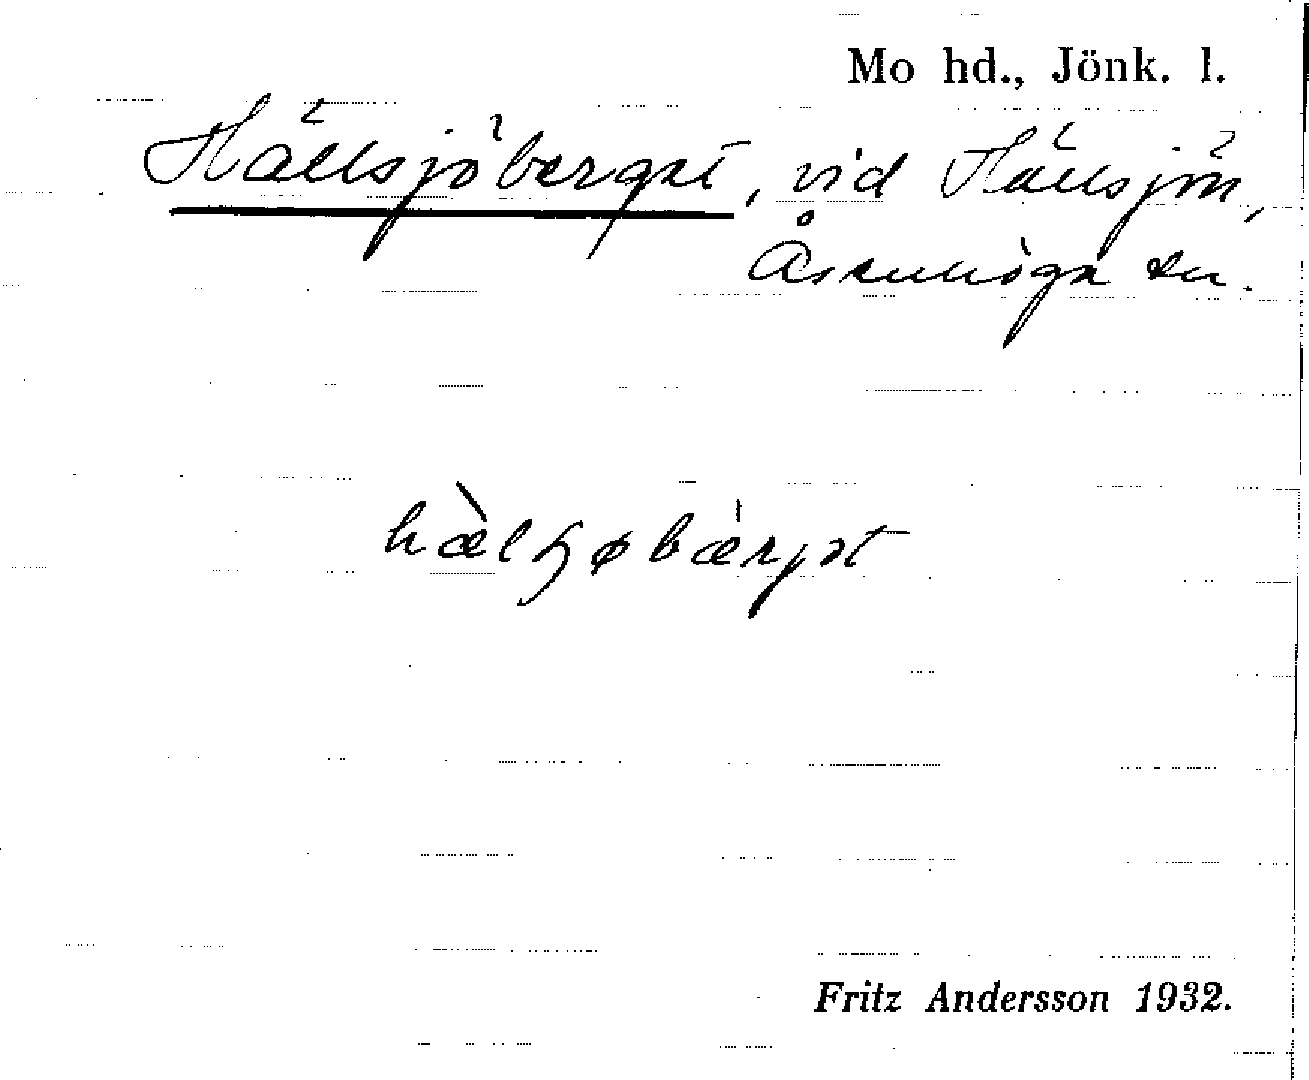 Mo hd., Jönk. l.
Hällsjöberget, vid Hällsjön,
Åsenhöga sn.
hæ̀lɧøbæ̀rjət
Fritz Andersson 1932.